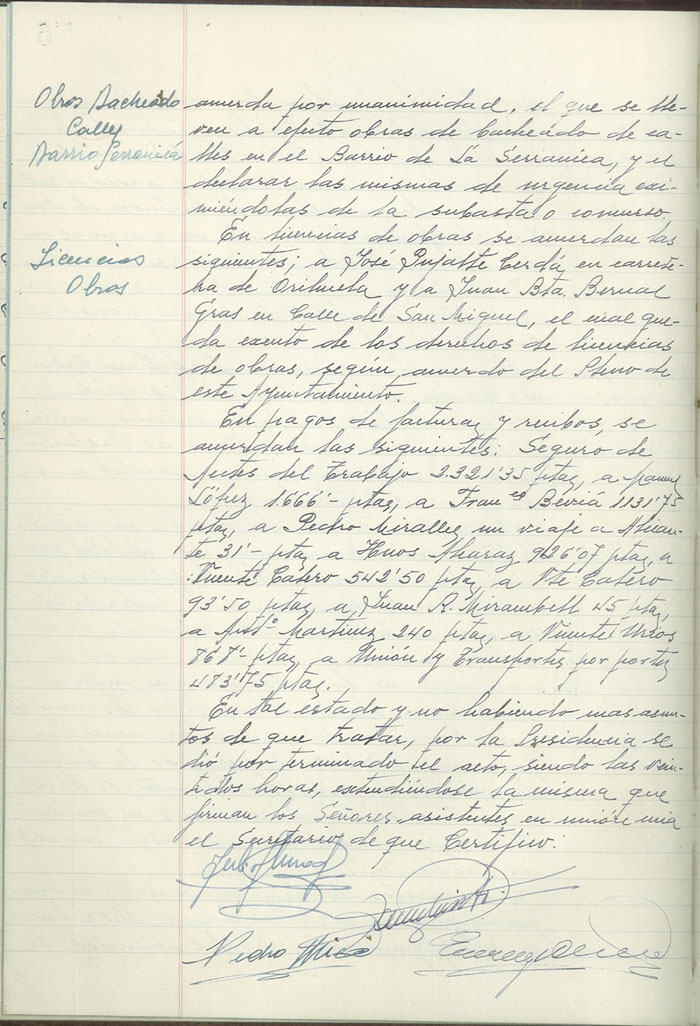 Obras Bacheado
Calles
Barrio Serranica
acuerda por unanimidad, el que se lle-
ven a efecto obras de bacheado de ca-
lles en el Barrio de La Serranica, y el
declarar las mismas de urgencia exi-
miéndolas de la subasta o concurso.
Licencias
Obras
En licencias de obras se acuerdan las
siguientes; a José Pujalte Cerdá, en carrete-
ra de Orihuela y a Juan Bta. Bernal
Gras en Calle de San Miguel, el cual que-
da exento de los derechos de licencias
de obras, según acuerdo del Pleno de
este Ayuntamiento.
En pagos de facturas y recibos, se
acuerdan las siguientes: Seguro de
Actes del Trabajo 2.321'35 ptas, a
López 1.666'- ptas, a Franco Beviá 1131'75
ptas, a Pedro Miralles un viaje a Alican-
te 31'- ptas, a Hnos Alcaraz 926'07 ptas, a
Vicente Calero 542'50 ptas, a Vte Calero
93'50 ptas, a Juan R. Mirambell 45 ptas,
a Antº Martinez 240 ptas, a Vicente Urios
868'- ptas, a Unión y Transportes por portes
483'75 ptas.
En tal estado y no habiendo mas asun-
tos de que tratar, por la Presidencia se
dió por terminado el acto, siendo las vein-
tidos horas, extendiéndose la misma que
firman los Señores asistentes en unión mia
el Secretario de que Certifico:
Pedro